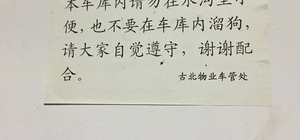 本车库内请勿在水沟里小
便，也不要在车库内溜狗，
请大家自觉遵守，谢谢配
合。
古北物业车管处